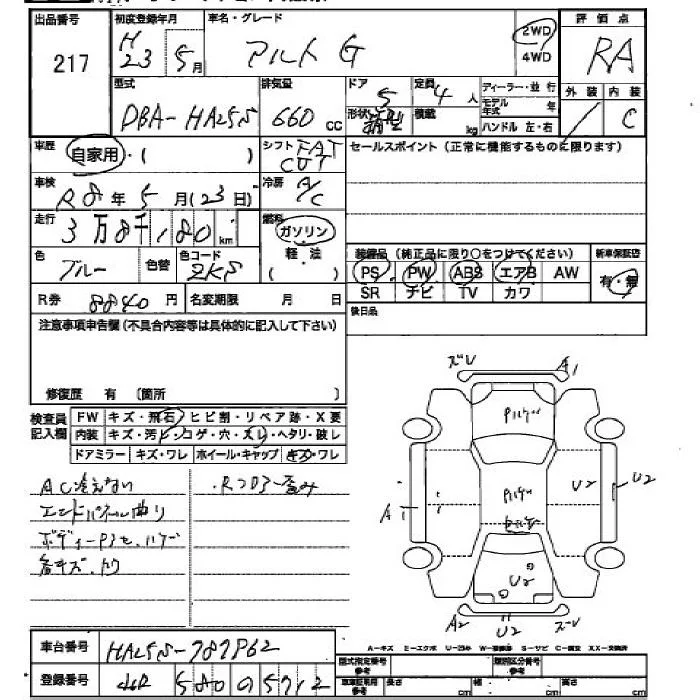 出品番号
217
初度登録年月
H23 5月
車名・グレード
アルト G
2WD
4WD
評価点
RA
外装 内装
/ C
型式
DBA-HA25S
排気量
660 cc
ドア
5
定員
4 人
形状
箱型
積載
kg
ディーラー・並行
モデル年式 年
ハンドル 左・右
車歴
自家用・( )
シフト FAT
冷房
A/C
セールスポイント (正常に機能するものに限ります)
車検
R8年 5月(23日)
走行
3万8千180 km
燃料
ガソリン
軽・油
( )
色
ブルー
色替
色コード
ZKS
装備品 (純正品に限り○をつけてください)
新車保証書
PS PW ABS エアB AW
有・無
SR ナビ TV カワ
R券 8840円
名変期限 月 日
後日品
注意事項申告欄(不具合内容等は具体的に記入して下さい)
修復歴 有 〔箇所 〕
検査員記入欄
FW キズ・飛石・ヒビ割・リペア跡・X要
内装 キズ・汚レ・コゲ・穴・スレ・ヘタリ・破レ
ドアミラー キズ・ワレ ホイール・キャップ キズ・ワレ
AC冷えない
エンドパネル曲り
各キズ、凹
ズレ A1
Pハゲ
Pハゲ
U2 U2
A1
U2
A2 U2 ズレ
A-キズ E-エクボ U-凹み W-補修跡 S-サビ C-腐食 XX-交換済
車台番号
HA25S-787862
登録番号
580 の 5712
型式指定番号 参考
類別区分番号 参考
車庫証明用 参考
長さ cm 幅 cm 高さ cm